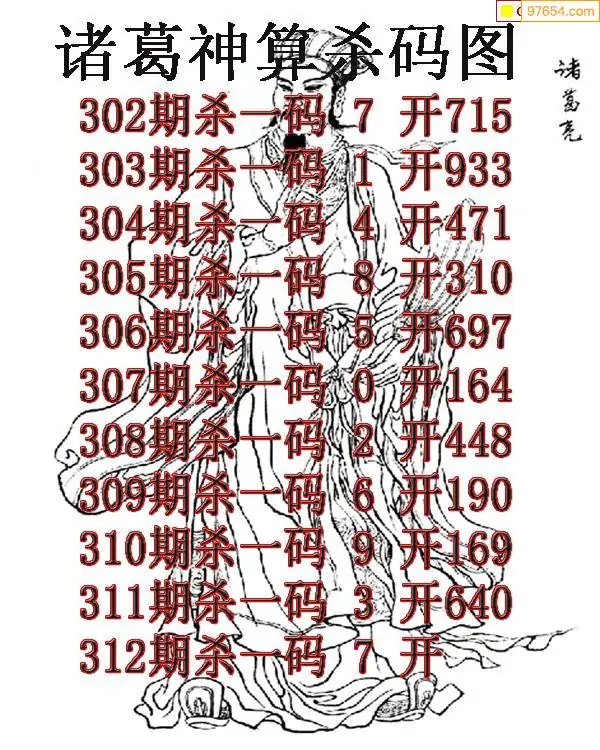 97654.com
诸葛神算杀码图
诸葛亮
302期杀一码 7 开715
303期杀一码 1 开933
304期杀一码 4 开471
305期杀一码 8 开310
306期杀一码 5 开697
307期杀一码 0 开164
308期杀一码 2 开448
309期杀一码 6 开190
310期杀一码 9 开169
311期杀一码 3 开640
312期杀一码 7 开